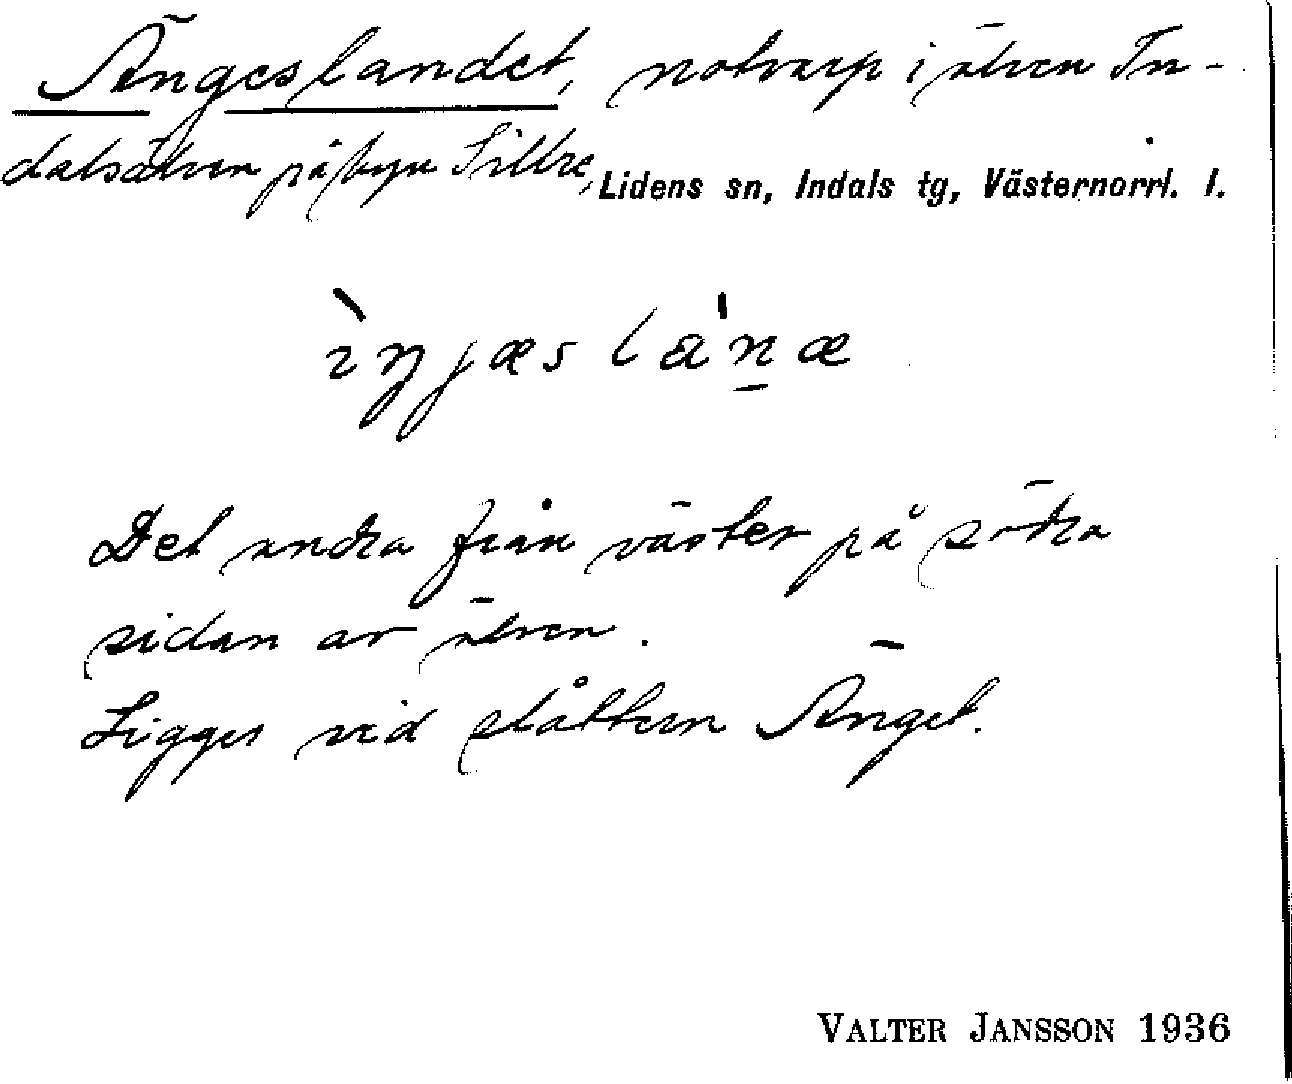 Ängeslandet, notvarp i älven In-
dalsälven på byn Sillre, Lidens sn, Indals tg, Västernorrl. l.
ìŋjæs lánæ
Det andra från väster på södra
sidan av älven.
Ligger vid slåttern Änget.
VALTER JANSSON 1936